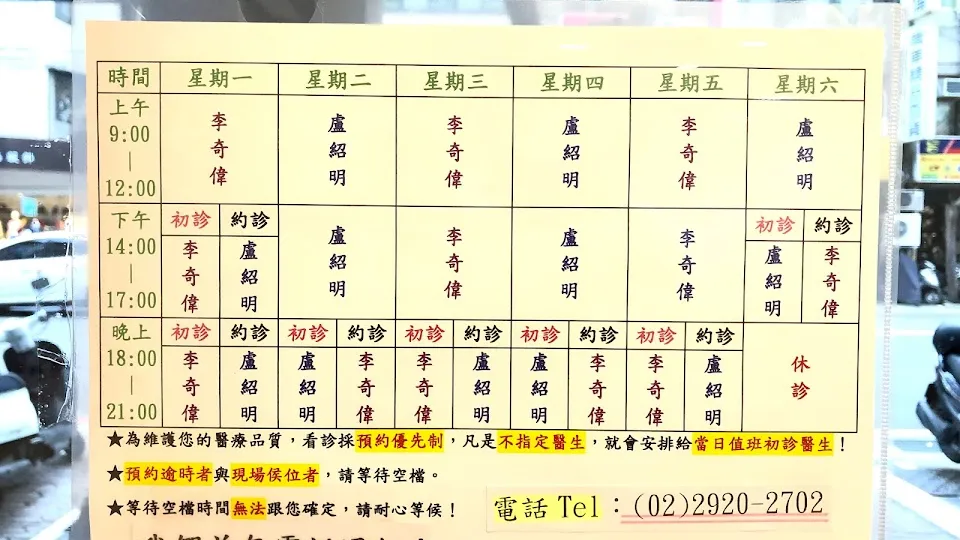 時間 星期一 星期二 星期三 星期四 星期五 星期六
上午 9:00 | 12:00 李奇偉 盧紹明 李奇偉 盧紹明 李奇偉 盧紹明
下午 14:00 | 17:00 初診 李奇偉 約診 盧紹明 盧紹明 李奇偉 盧紹明 李奇偉 初診 盧紹明 約診 李奇偉
晚上 18:00 | 21:00 初診 李奇偉 約診 盧紹明 初診 盧紹明 約診 李奇偉 初診 李奇偉 約診 盧紹明 初診 盧紹明 約診 李奇偉 初診 李奇偉 約診 盧紹明 休診
★為維護您的醫療品質，看診採預約優先制，凡是不指定醫生，就會安排給當日值班初診醫生！
★預約逾時者與現場侯位者，請等待空檔。
★等待空檔時間無法跟您確定，請耐心等候！
電話 Tel：(02)2920-2702